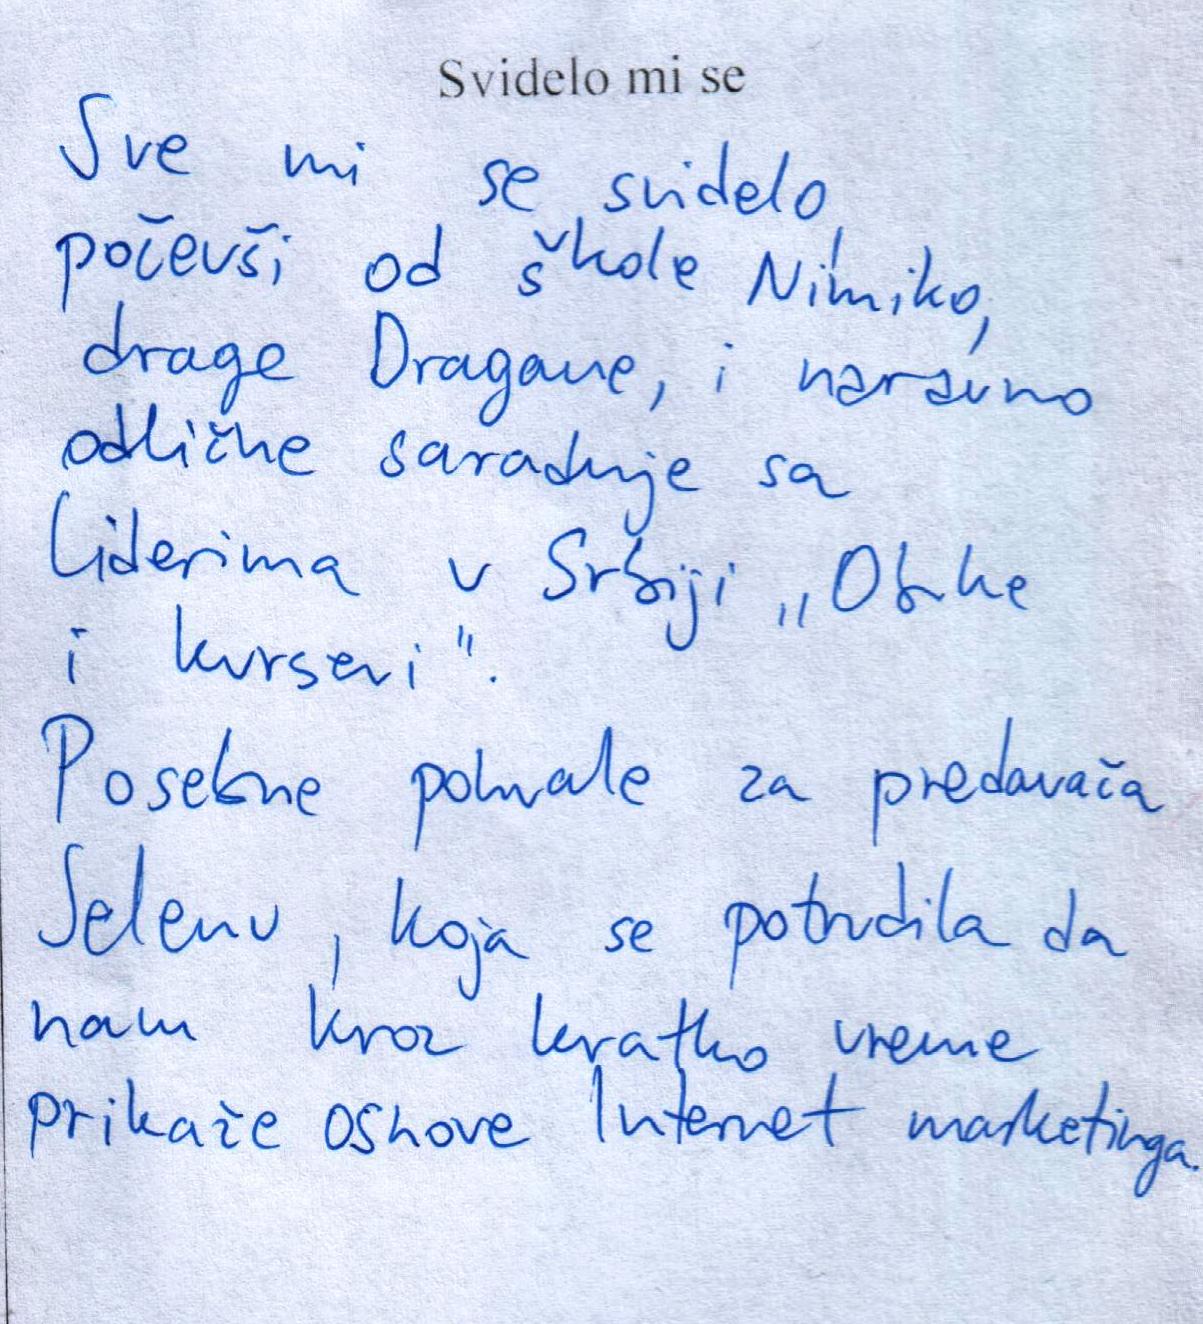 Svidelo mi se
Sve mi se svidelo,
počevši od škole Nimiko,
drage Dragane, i naravno
odlične saradnje sa
liderima u Srbiji „Obuke
i kursevi".
Posebne pohvale za predavača
Jelenu, koja se potrudila da
nam kroz kratko vreme
prikaže osnove Internet marketinga.